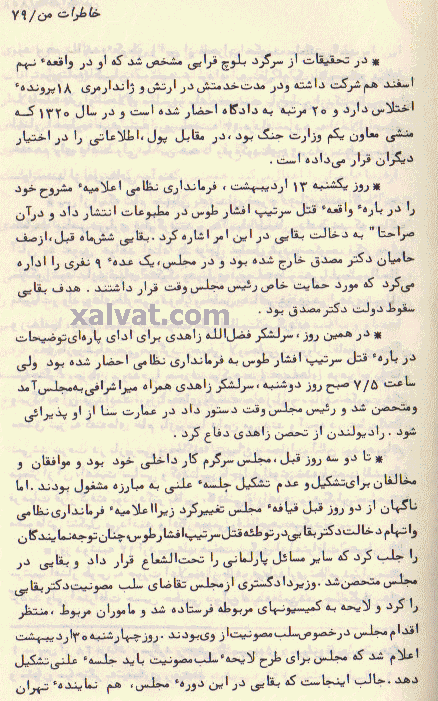 خاطرات من/۷۹
* در تحقیقات از سرگرد بلوچ قرایی مشخص شد که او در واقعهٔ نهم
اسفند هم شرکت داشته ودر مدت خدمتش در ارتش و ژاندارمری ۱۸پروندهٔ
اختلاس دارد و ۲۰ مرتبه به دادگاه احضار شده است و در سال ۱۳۲۰ کـه
منشی معاون یکم وزارت جنگ بود،در مقابل پول،اطلاعاتی را در اختیار
دیگران قرار می‌داده است .
* روز یکشنبه ۱۳ اردیبهشت ، فرمانداری نظامی اعلامیهٔ مشروح خود
را در بارهٔ واقعهٔ قتل سرتیپ افشار طوس در مطبوعات انتشار داد و درآن
صراحتا" به دخالت بقایی در این امر اشاره کرد .بقایی شش‌ماه قبل،ازصف
حامیان دکتر مصدق خارج شده بود و در مجلس،یک عدهٔ ۹ نفری را اداره
می‌کرد که مورد حمایت خاص رئیس مجلس وقت قرار داشتند . هدف بقایی
سقوط دولت دکتر مصدق بود .
xalvat.com
* در همین روز، سرلشکر فضل‌الله زاهدی برای ادای پاره‌ای‌توضیحات
در بارهٔ قتل سرتیپ افشار طوس به فرمانداری نظامی احضار شده بود ولی
ساعت ۷/۵ صبح روز دوشنبه،سرلشکر زاهدی همراه میراشرافی‌به‌مجلس‌آمد
ومتحصن شد و رئیس مجلس وقت دستور داد در عمارت سنا از او پذیرائی
شود . رادیولندن از تحصن زاهدی دفاع کرد .
* تا دو سه روز قبل،مجلس سرگرم کار داخلی خود بود و موافقان و
مخالفان برای‌تشکیل‌و عدم تشکیل جلسهٔ علنی به مبارزه مشغول بودند .اما
ناگهان از دو روز قبل قیافهٔ مجلس تغییرکرد زیرااعلامیهٔ فرمانداری‌نظامی
واتهام دخالت‌دکتربقایی‌درتوطئه‌قتل‌سرتیپ‌افشارطوس‌چنان‌توجه‌نمایندگان
را جلب کرد که سایر مسائل پارلمانی را تحت‌الشعاع قرار داد و بقایی در
مجلس متحصن‌شد .وزیردادگستری ازمجلس تقاضای سلب مصونیت‌دکتربقایی
را کرد و لایحه به کمیسیونهای مربوطه فرستاده شد و ماموران مربوط ،منتظر
اقدام مجلس درخصوص‌سلب‌مصونیت‌از وی‌بودند .روزچهارشنبه‌۳۰اردیبهشت
اعلام شد که مجلس برای طرح لایحهٔ سلب‌مصونیت باید جلسهٔ علنی‌تشکیل
دهد .جالب اینجاست که بقایی در این دورهٔ مجلس، هم نمایندهٔ تهران